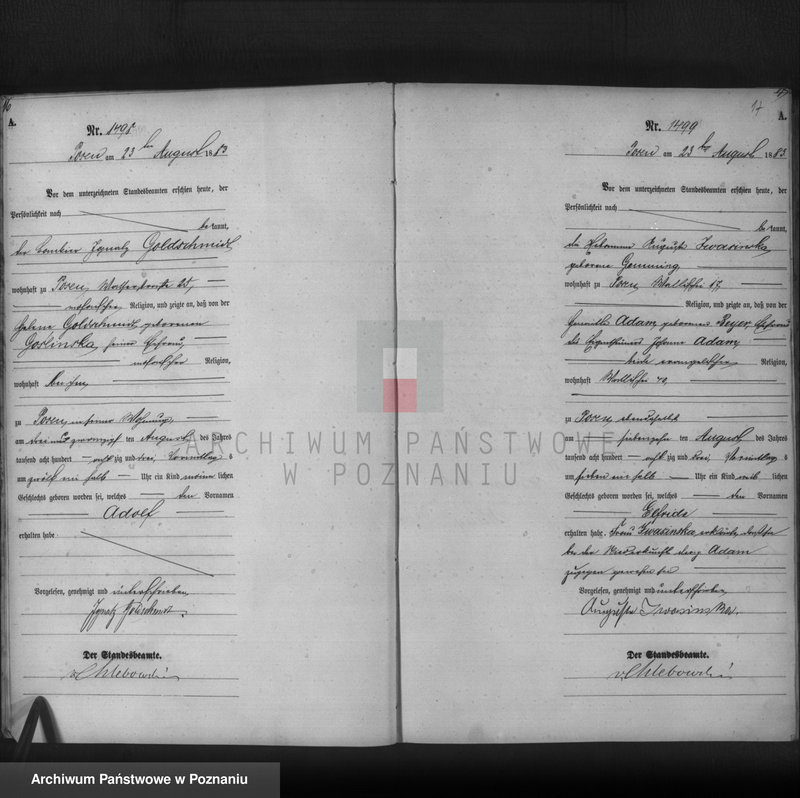 16
A.
Nr. 1498
Posen am 23ten August 1883
Vor dem unterzeichneten Standesbeamten erschien heute, der
Persönlichkeit nach
bekannt,
der Ignatz Goldschmidt
wohnhaft zu Posen,
mosaischer Religion, und zeigte an, daß von der
Helene Goldschmidt geborenen
Gorlinska, seiner Ehefrau
mosaischer Religion,
wohnhaft bei ihm
zu Posen in seiner Wohnung
am drei und zwanzigsten August des Jahres
tausend acht hundert achtzig und drei, Vormittags
um zwölf ein halb Uhr ein Kind männlichen
Geschlechts geboren worden sei, welches den Vornamen
Adolf
erhalten habe
Vorgelesen, genehmigt und unterschrieben
Ignatz Goldschmidt.
Der Standesbeamte.
v. Chlebowski
17
A.
Nr. 1499
Posen am 23ten August 1883
Vor dem unterzeichneten Standesbeamten erschien heute, der
Persönlichkeit nach
bekannt,
die Hebamme Auguste Iwasinska
geborene
wohnhaft zu Posen, Wallischei
Religion, und zeigte an, daß von der
Adam geborenen Beyer, Ehefrau
des Eigenthümers Johann Adam,
beide evangelischer Religion,
wohnhaft Wallischei 70,
zu Posen ebendaselbst
am siebenzehnten August des Jahres
tausend acht hundert achtzig und drei, Vormittags
um sieben ein halb Uhr ein Kind weiblichen
Geschlechts geboren worden sei, welches den Vornamen
Elfride
erhalten habe. Frau Iwasinska erklärte, daß sie
bei der Niederkunft der Adam
zugegen gewesen sei
Vorgelesen, genehmigt und unterschrieben
Auguste Iwasinska.
Der Standesbeamte.
v. Chlebowski
ARCHIWUM PAŃSTWOWE
W POZNANIU
Archiwum Państwowe w Poznaniu